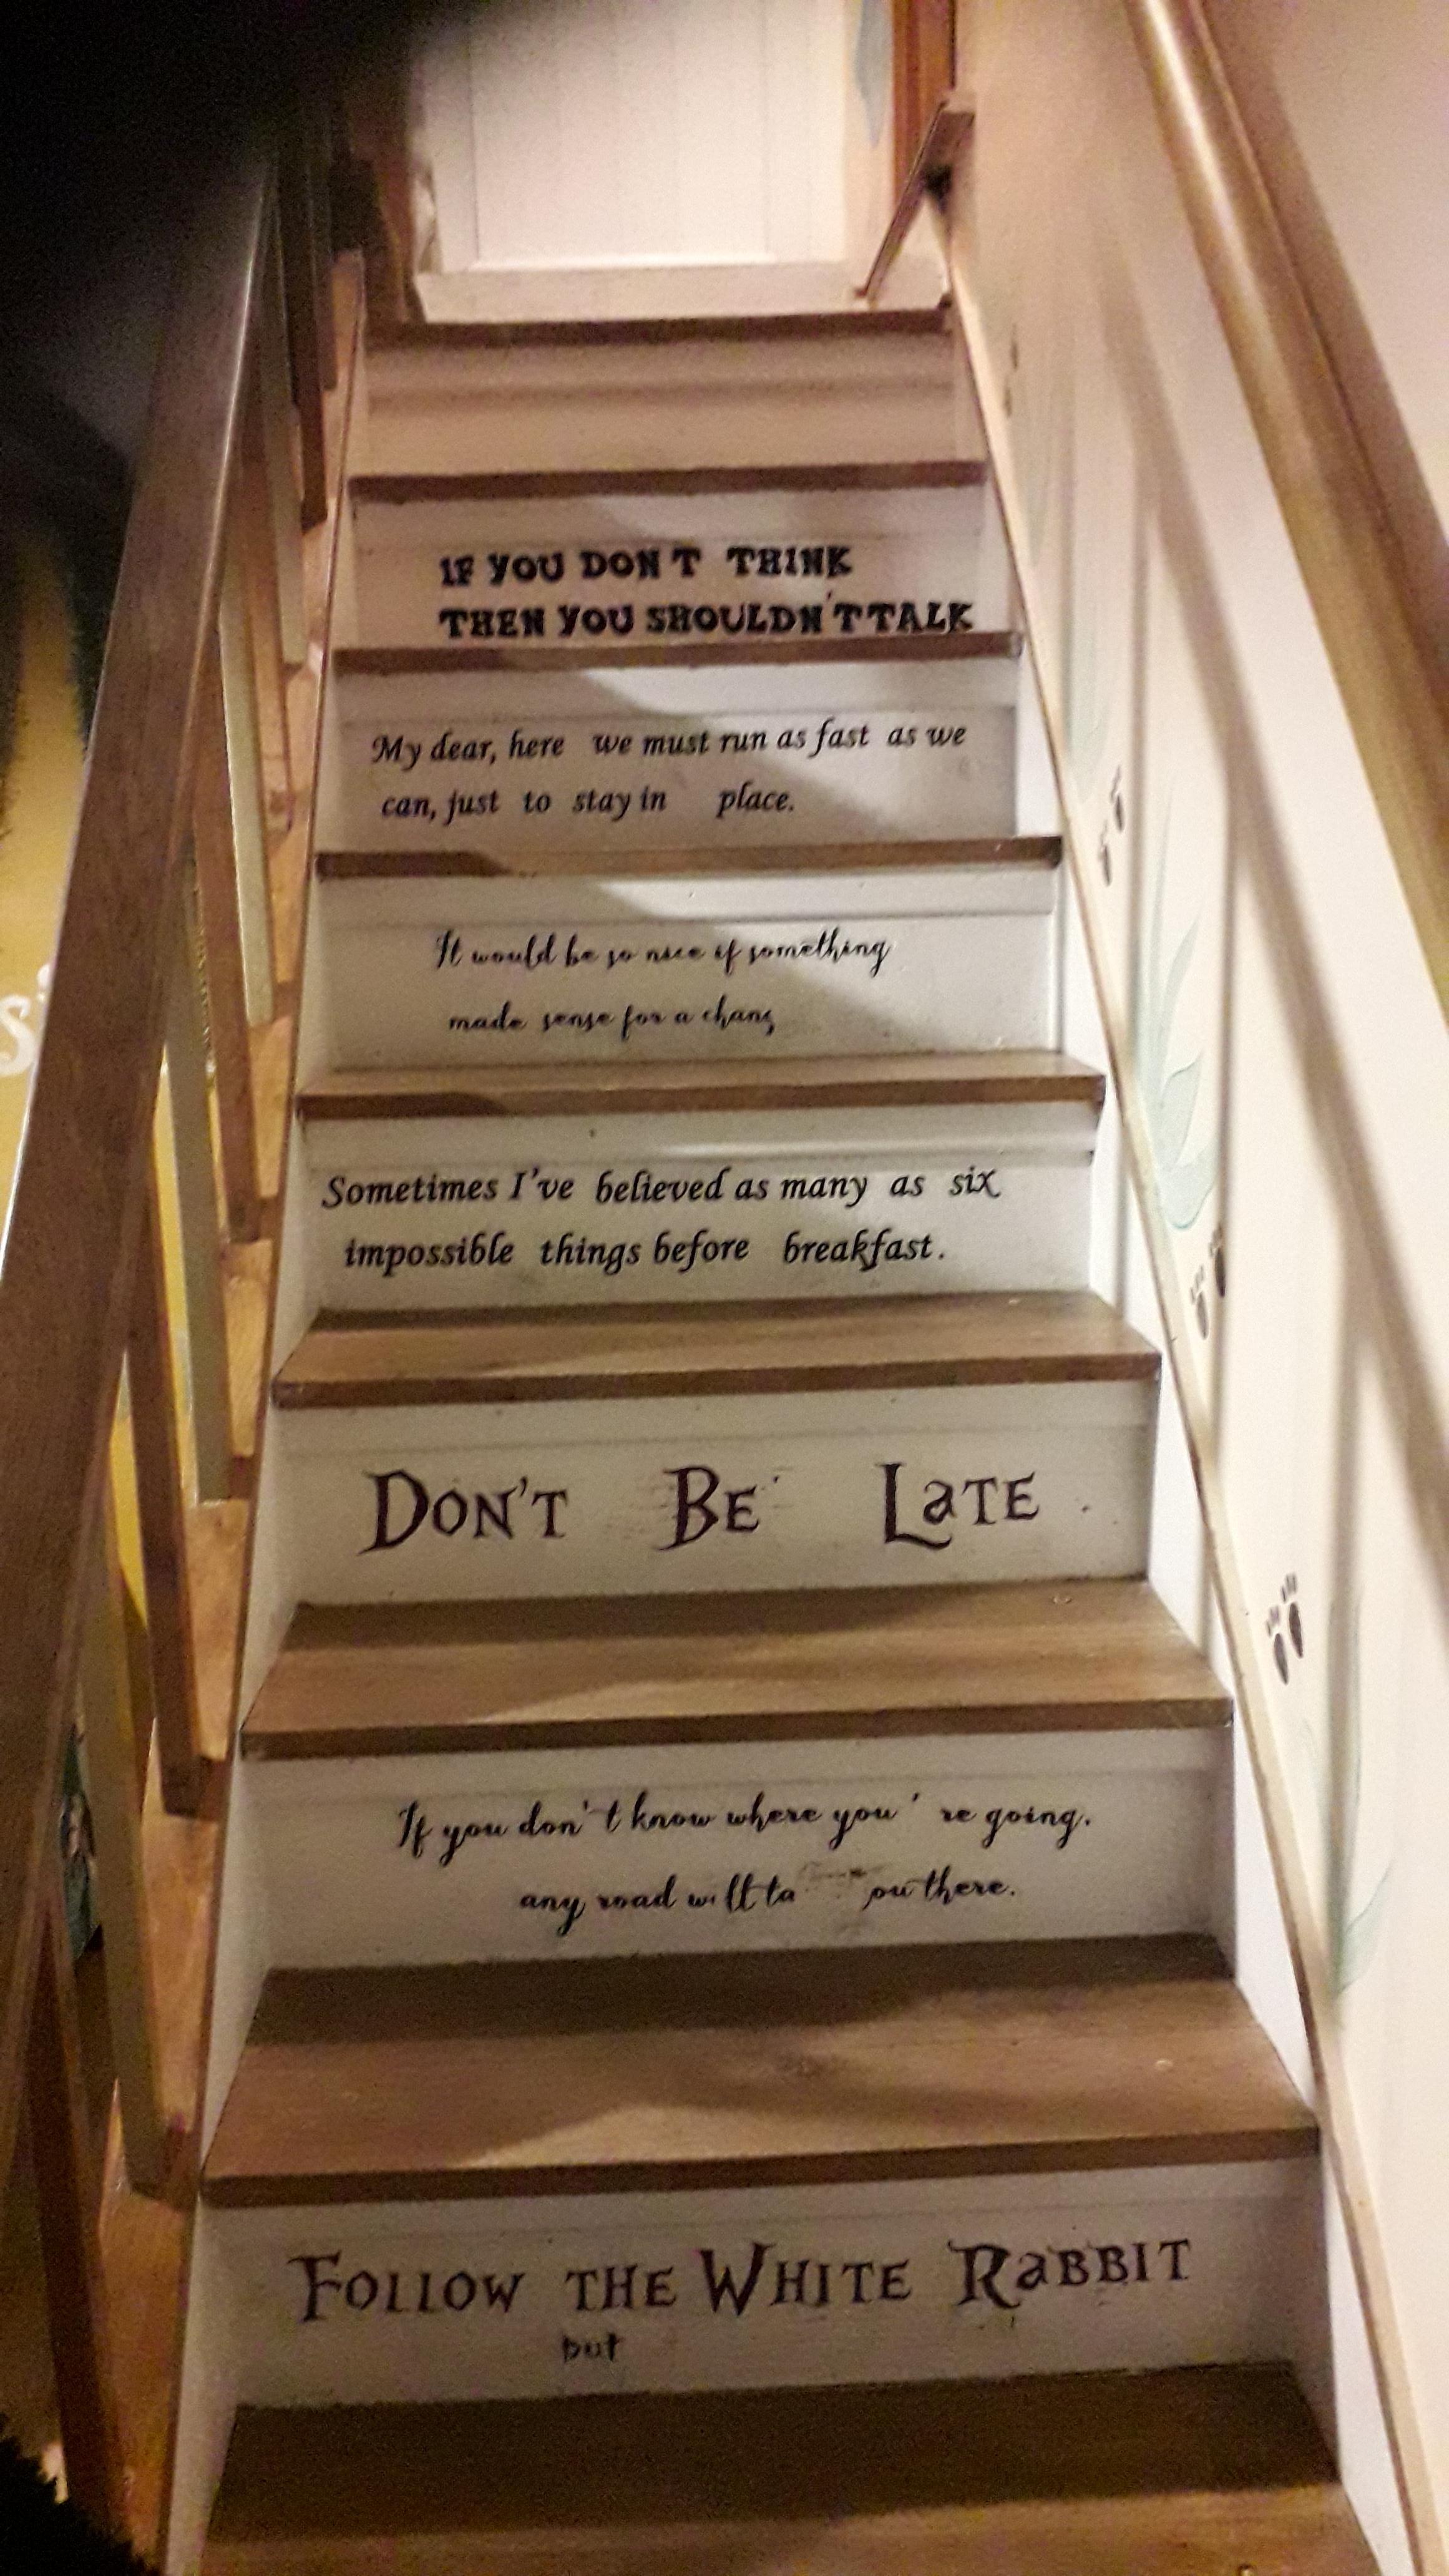 IF YOU DON T THINK
THEN YOU SHOULDN'T TALK
My dear, here we must run as fast as we
can, just to stay in place.
It would be so nice if something
made sense for a chang
Sometimes I've believed as many as six
impossible things before breakfast.
DON'T BE LaTE
If you don't know where you're going.
any road will ta ou there.
FOLLOW THE WHITE RaBBIT
but